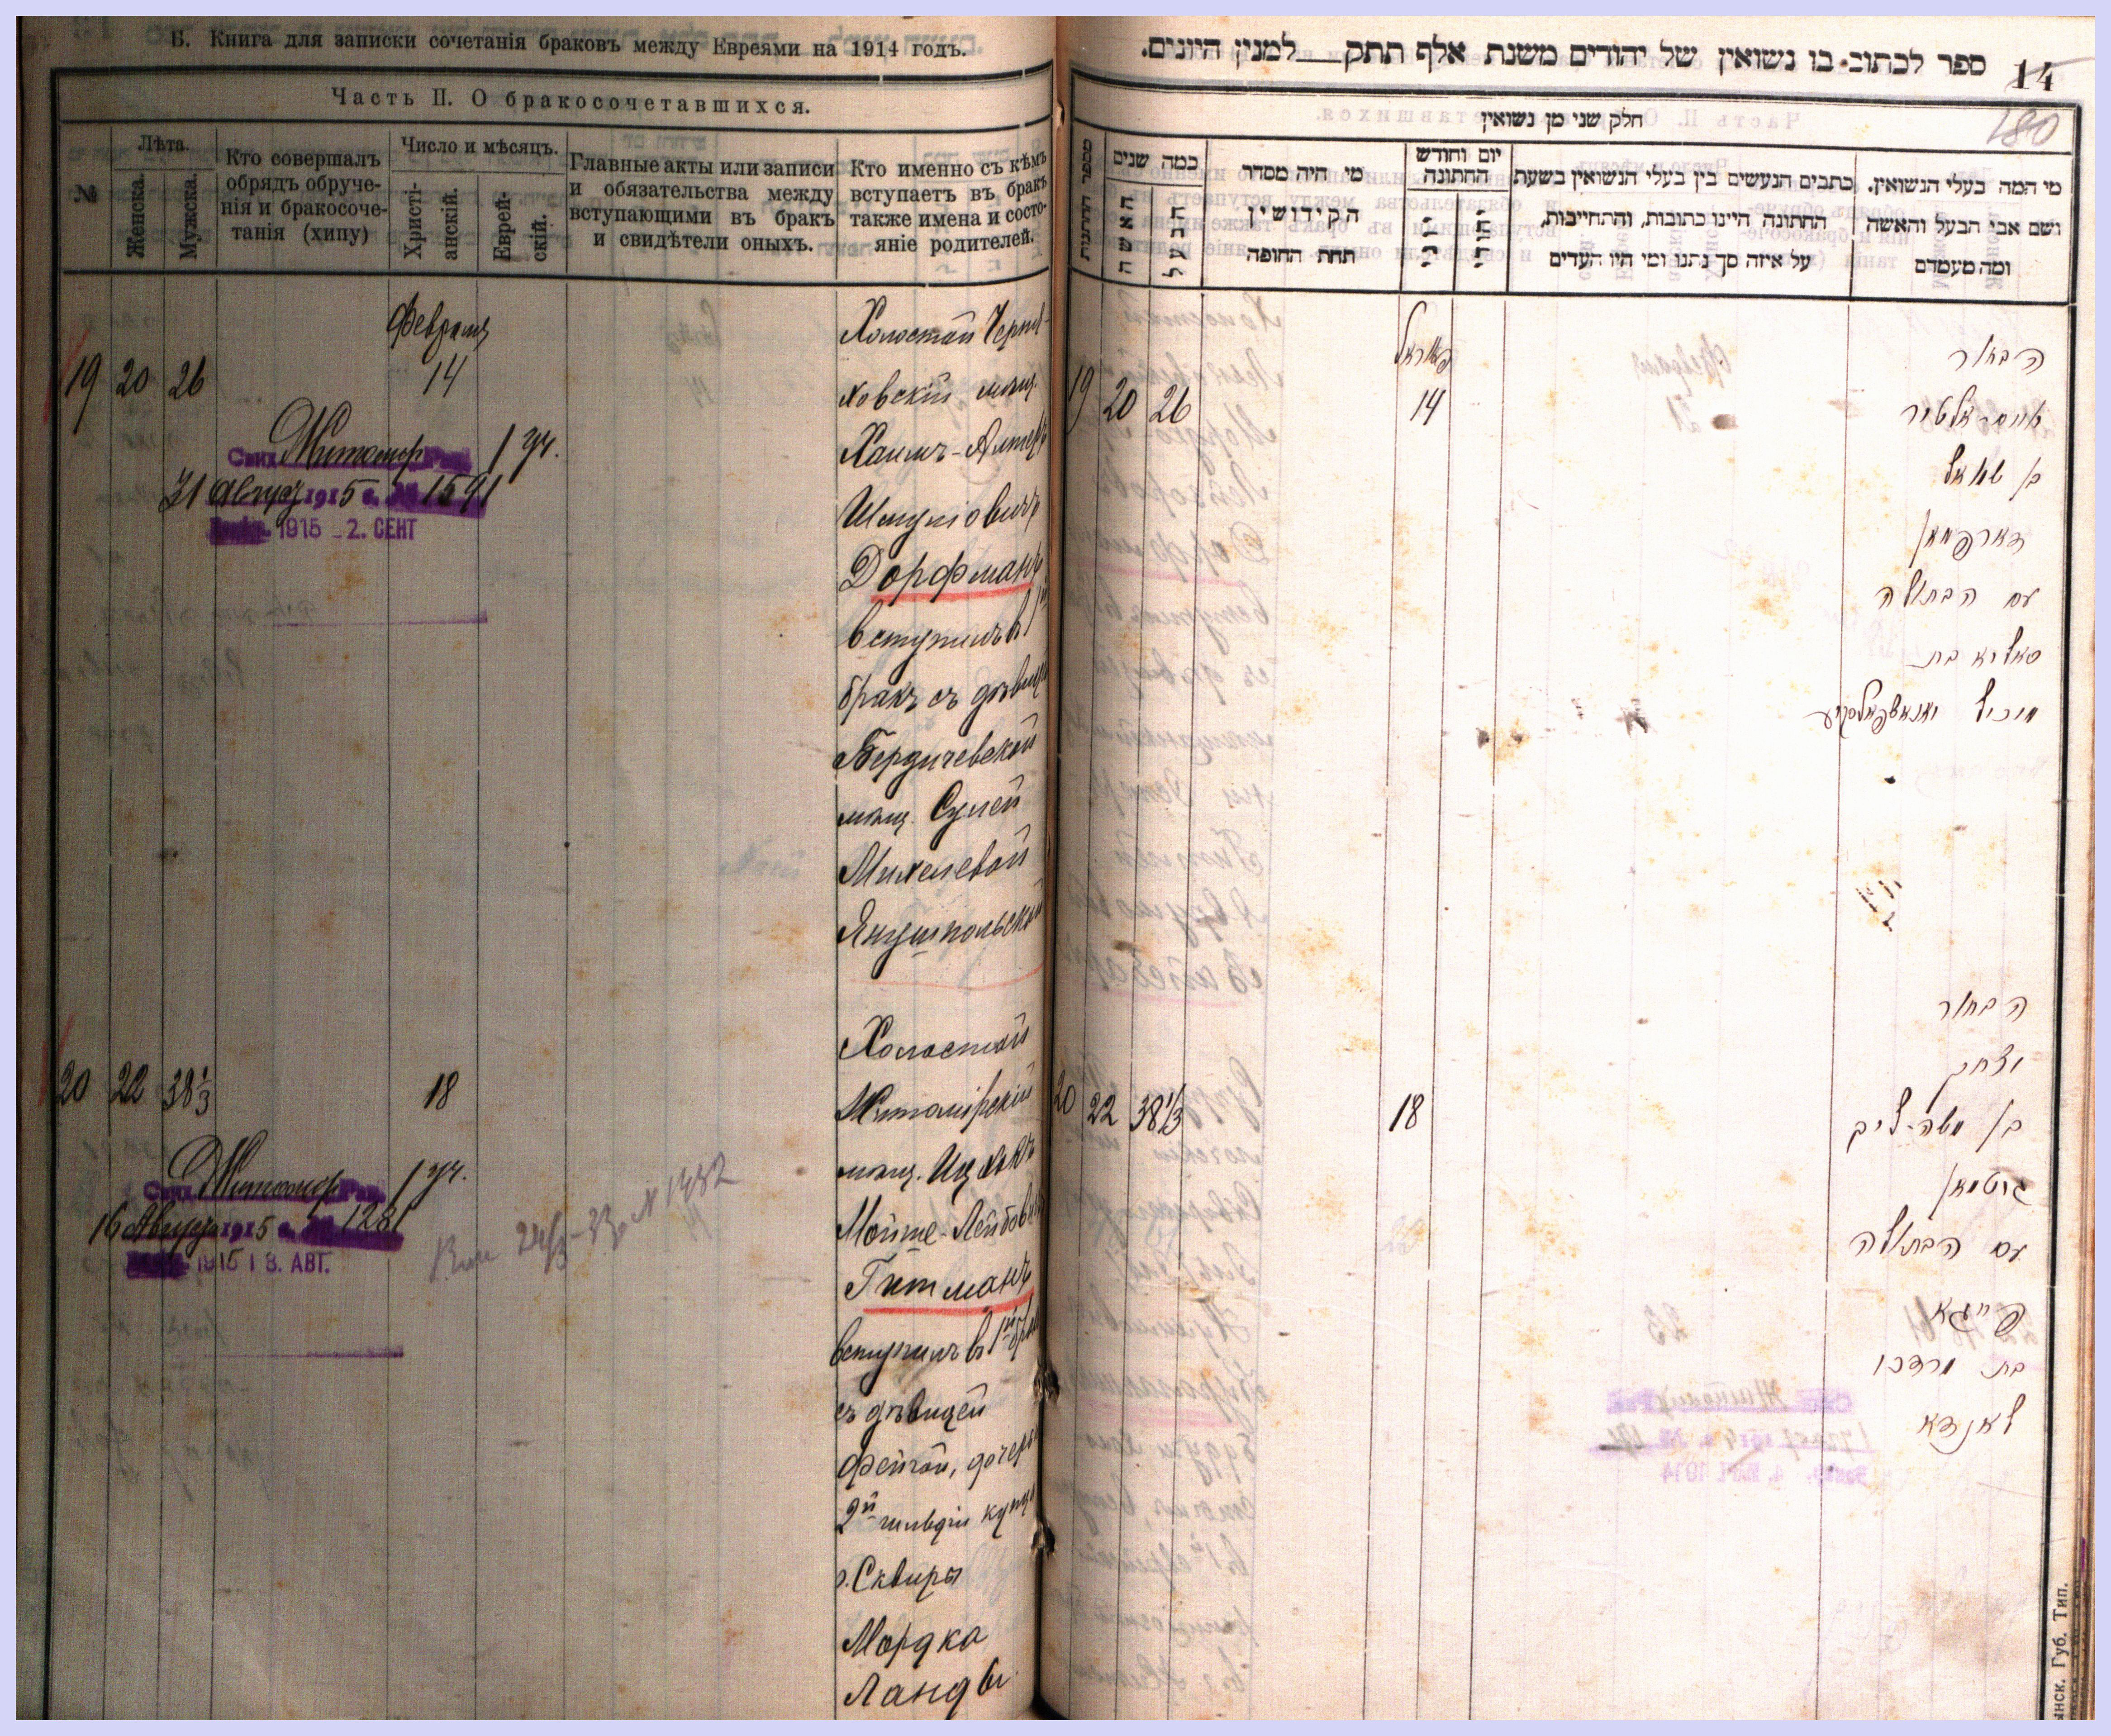 Б. Книга для записки сочетанія браковъ между Евреями на 1914 годъ.
Часть II. О бракосочетавшихся.
№
Лѣта.
Женска.
Мужска.
Кто совершалъ
обрядъ обруче-
нія и бракосоче-
танія (хипу)
Число и мѣсяцъ.
Христі-
анскій.
Еврей-
скій.
Главные акты или записи
и обязательства между
вступающими въ бракъ
и свидѣтели оныхъ.
Кто именно съ кѣмъ
вступаетъ въ бракъ
также имена и состо-
яніе родителей.
Февраля
19 20 26 14
Житомир 1 уч.
31 Август 1915 г. № 1591
1915 - 2. СЕНТ
Холостой Черня-
ховскій мѣщ.
Хаимъ-Алтеръ
Шмуліовичъ
Дорфманъ
вступилъ въ 1й
бракъ съ дѣвицей
Бердичевской
мѣщ. Сулей
Михелевой
Янушпольской
20 22 38⅓ 18
Житомир 1 уч.
16 Август 1915 г. № 1281
1915 18. АВГ.
Холостой
Житомірскій
мѣщ. Ицхокъ
Мойше-Лейбовичъ
Гитманъ
вступилъ въ 1й бракъ
съ дѣвицей
Фейгой, дочерью
2й гильдіи купца
г. Сквиры
Мордка
Ланды
ספר לכתוב בו נשואין של יהודים משנת אלף תתק למנין היונים.
14
180
חלק שני מן נשואין
מספר החתונות
כמה שנים
האשה
הבעל
מי היה מסדר
הקידושין
תחת החופה
יום וחודש
החתונה
כתבים הנעשים בין בעלי הנשואין בשעת
החתונה היינו כתובות, והתחייבות,
על איזה סך נתנו ומי היו העדים
מי המה בעלי הנשואין.
ושם אבי הבעל והאשה
ומה מעמדם
19 20 26 14
הבחור
בן שמואל
דארפמאן
עם הבתולה
סאליא בת
מיכל יאנאשפאלסקיע
20 22 38⅓ 18
הבחור
יצחק
בן משה-ליב
גיטמאן
עם הבתולה
פייגא
בת מרדכי
לאנדא
нск. Губ. Тип.